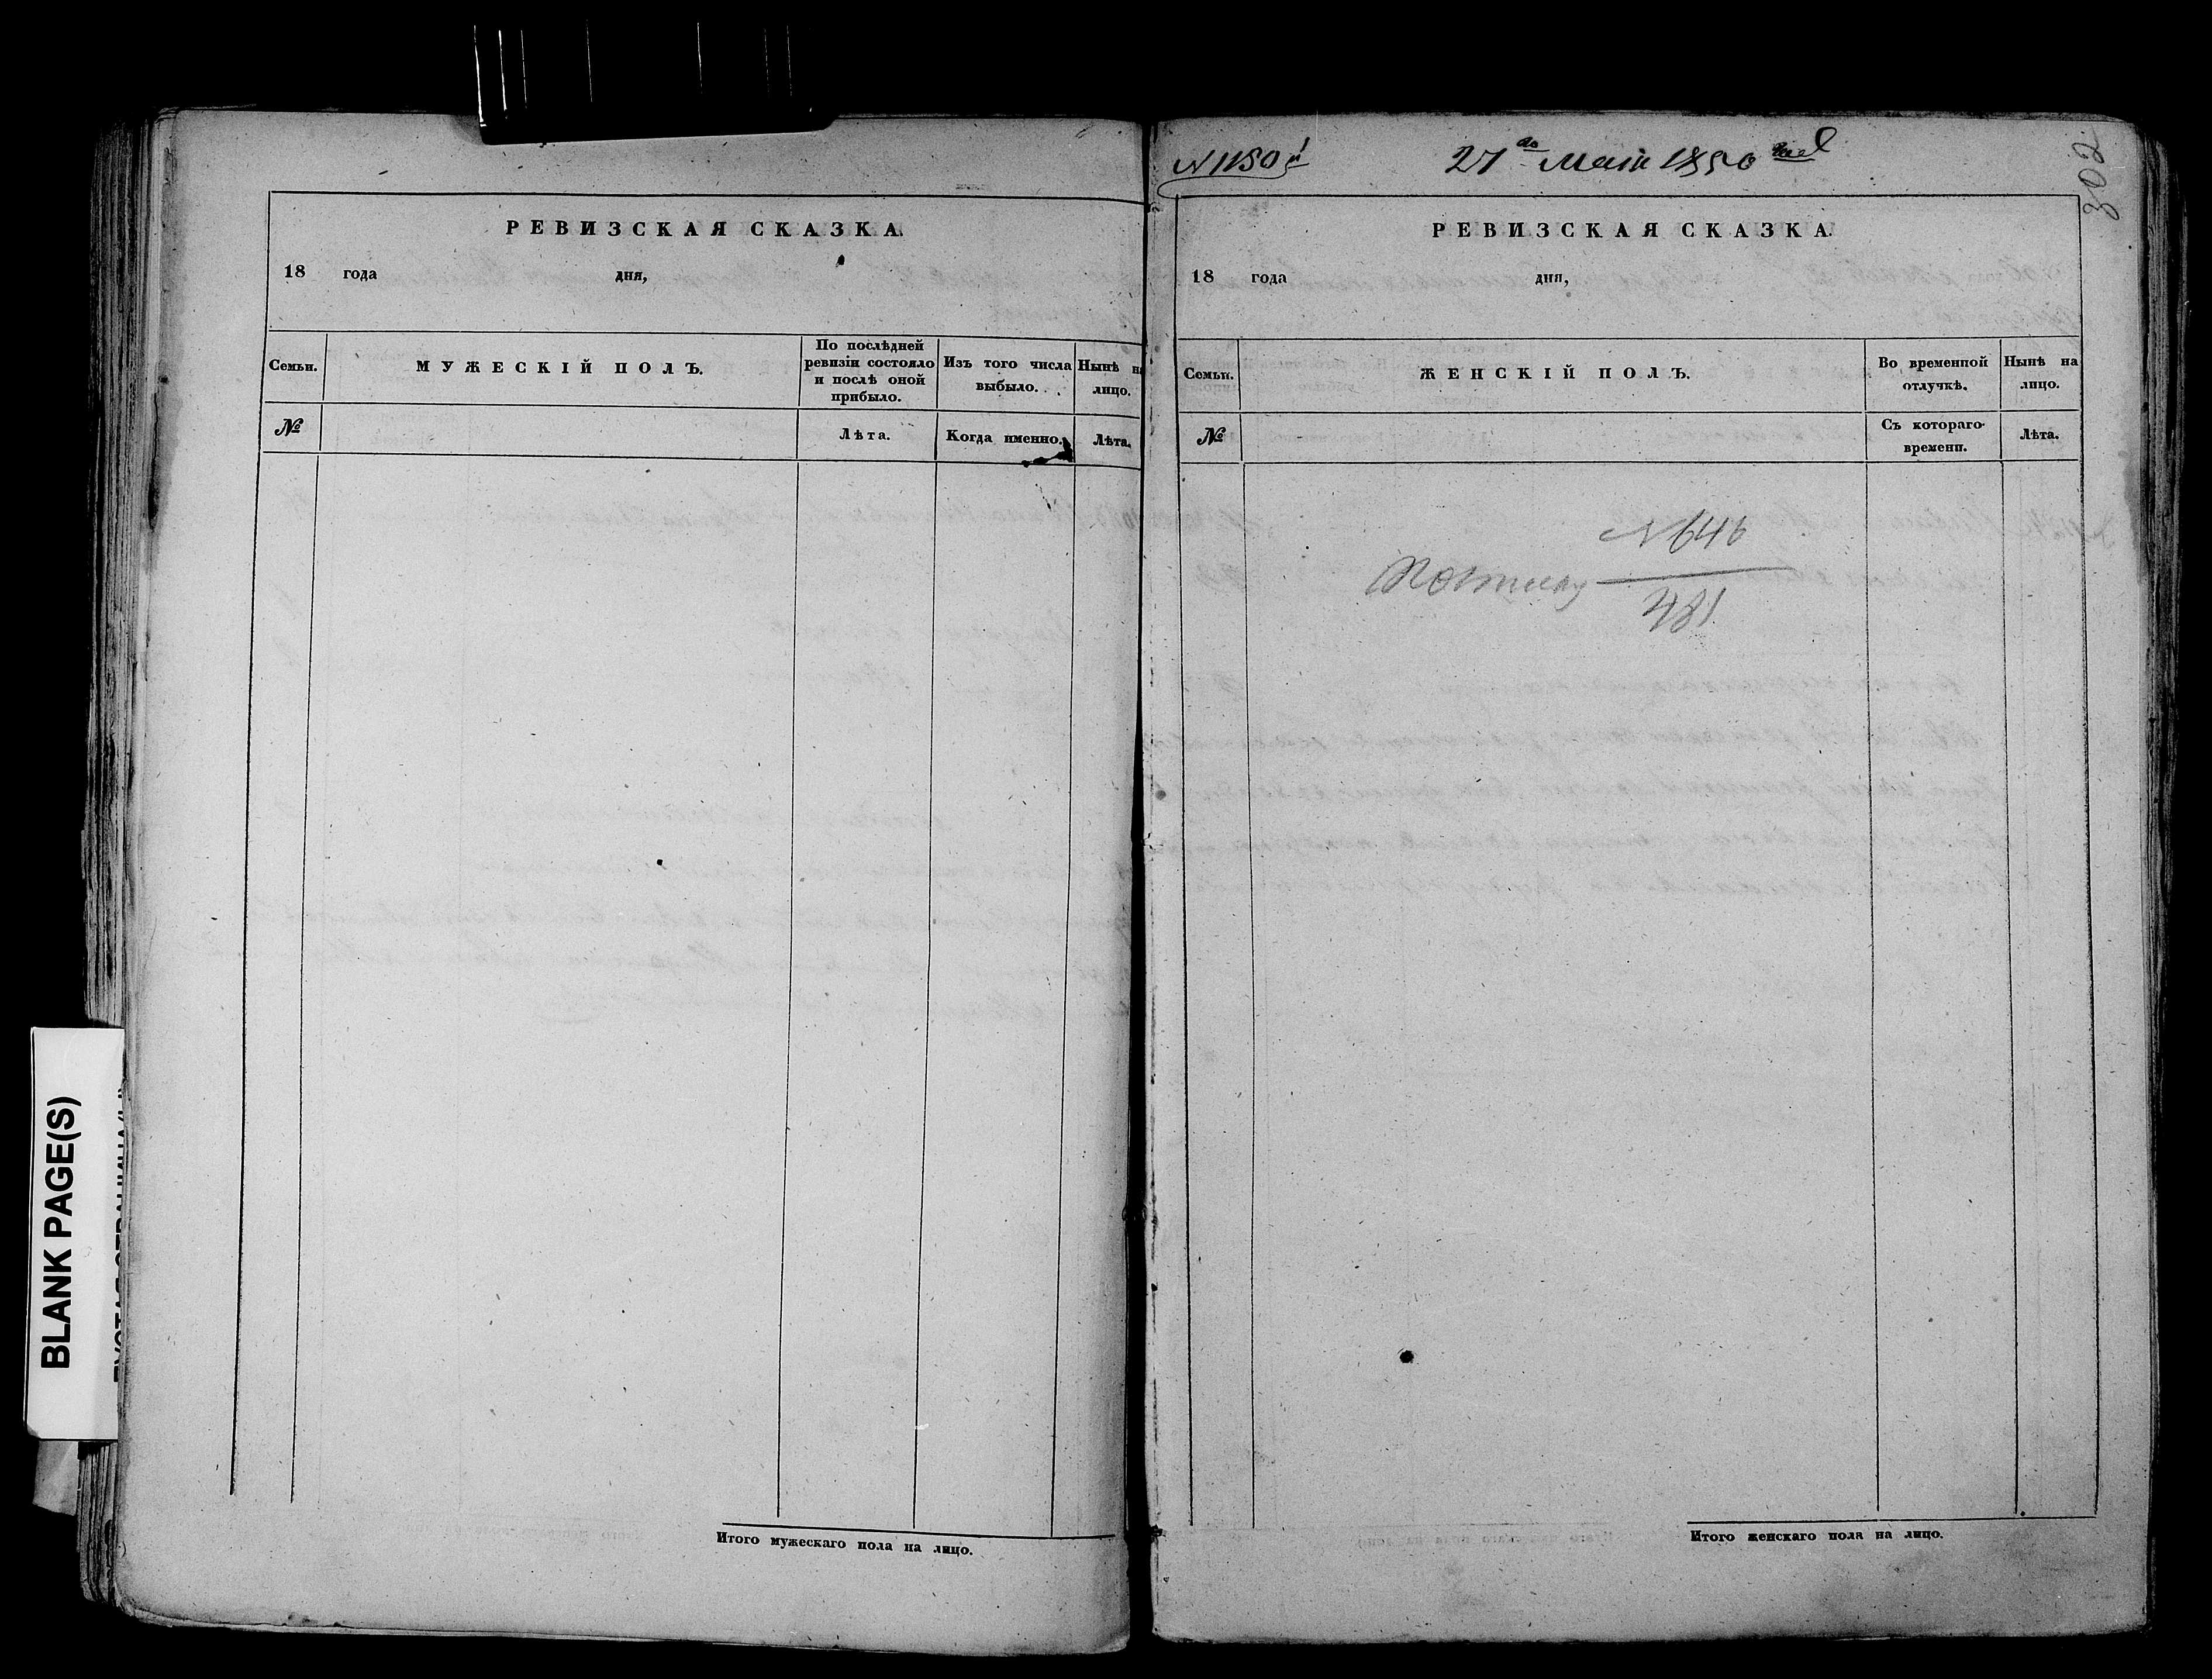 РЕВИЗСКАЯ СКАЗКА.
18 года дня,
Семьи.
МУЖЕСКІЙ ПОЛЪ.
По послѣдней
ревизіи состояло
и послѣ оной
прибыло.
Изъ того числа
выбыло.
Нынѣ на
лицо.
№
Лѣта.
Когда именно.
Лѣта.
Итого мужескаго пола на лицо.
BLANK PAGE(S)
27 Маія 1850
302
РЕВИЗСКАЯ СКАЗКА.
18 года дня,
Семьи.
ЖЕНСКІЙ ПОЛЪ.
Во временной
отлучкѣ.
Нынѣ на
лицо.
№
Съ котораго
времени.
Лѣта.
N 646
481
Итого женскаго пола на лицо.